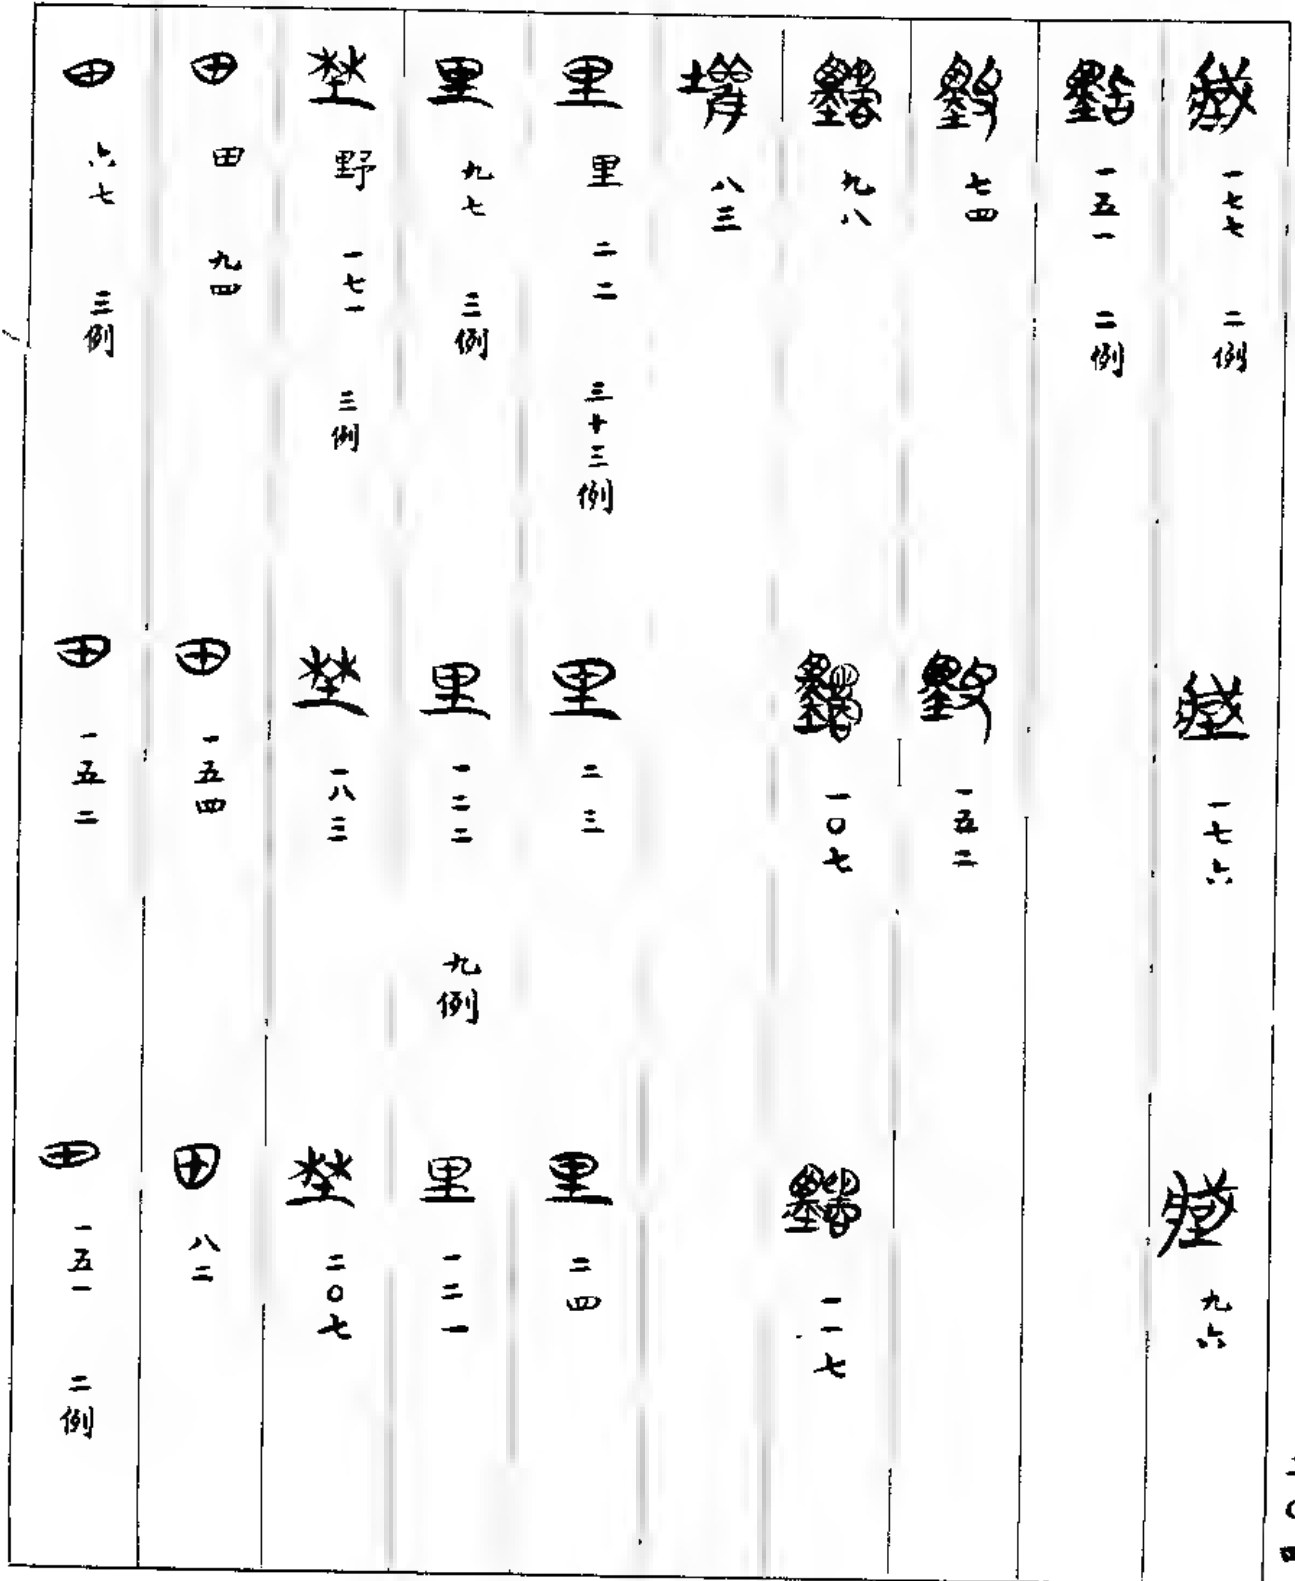 一七七 二例 一七六 九六
一五一 二例
七四 一五二
九八 一〇七 一一七
八三
里 里 二二 三十三例 里 二三 里 二四
里 九七 三例 里 一二二 九例 里 一二一
埜 野 一七一 三例 埜 一八三 埜 二〇七
田 田 九四 田 一五四 田 八二
田 六七 三例 田 一五二 田 一五一 二例